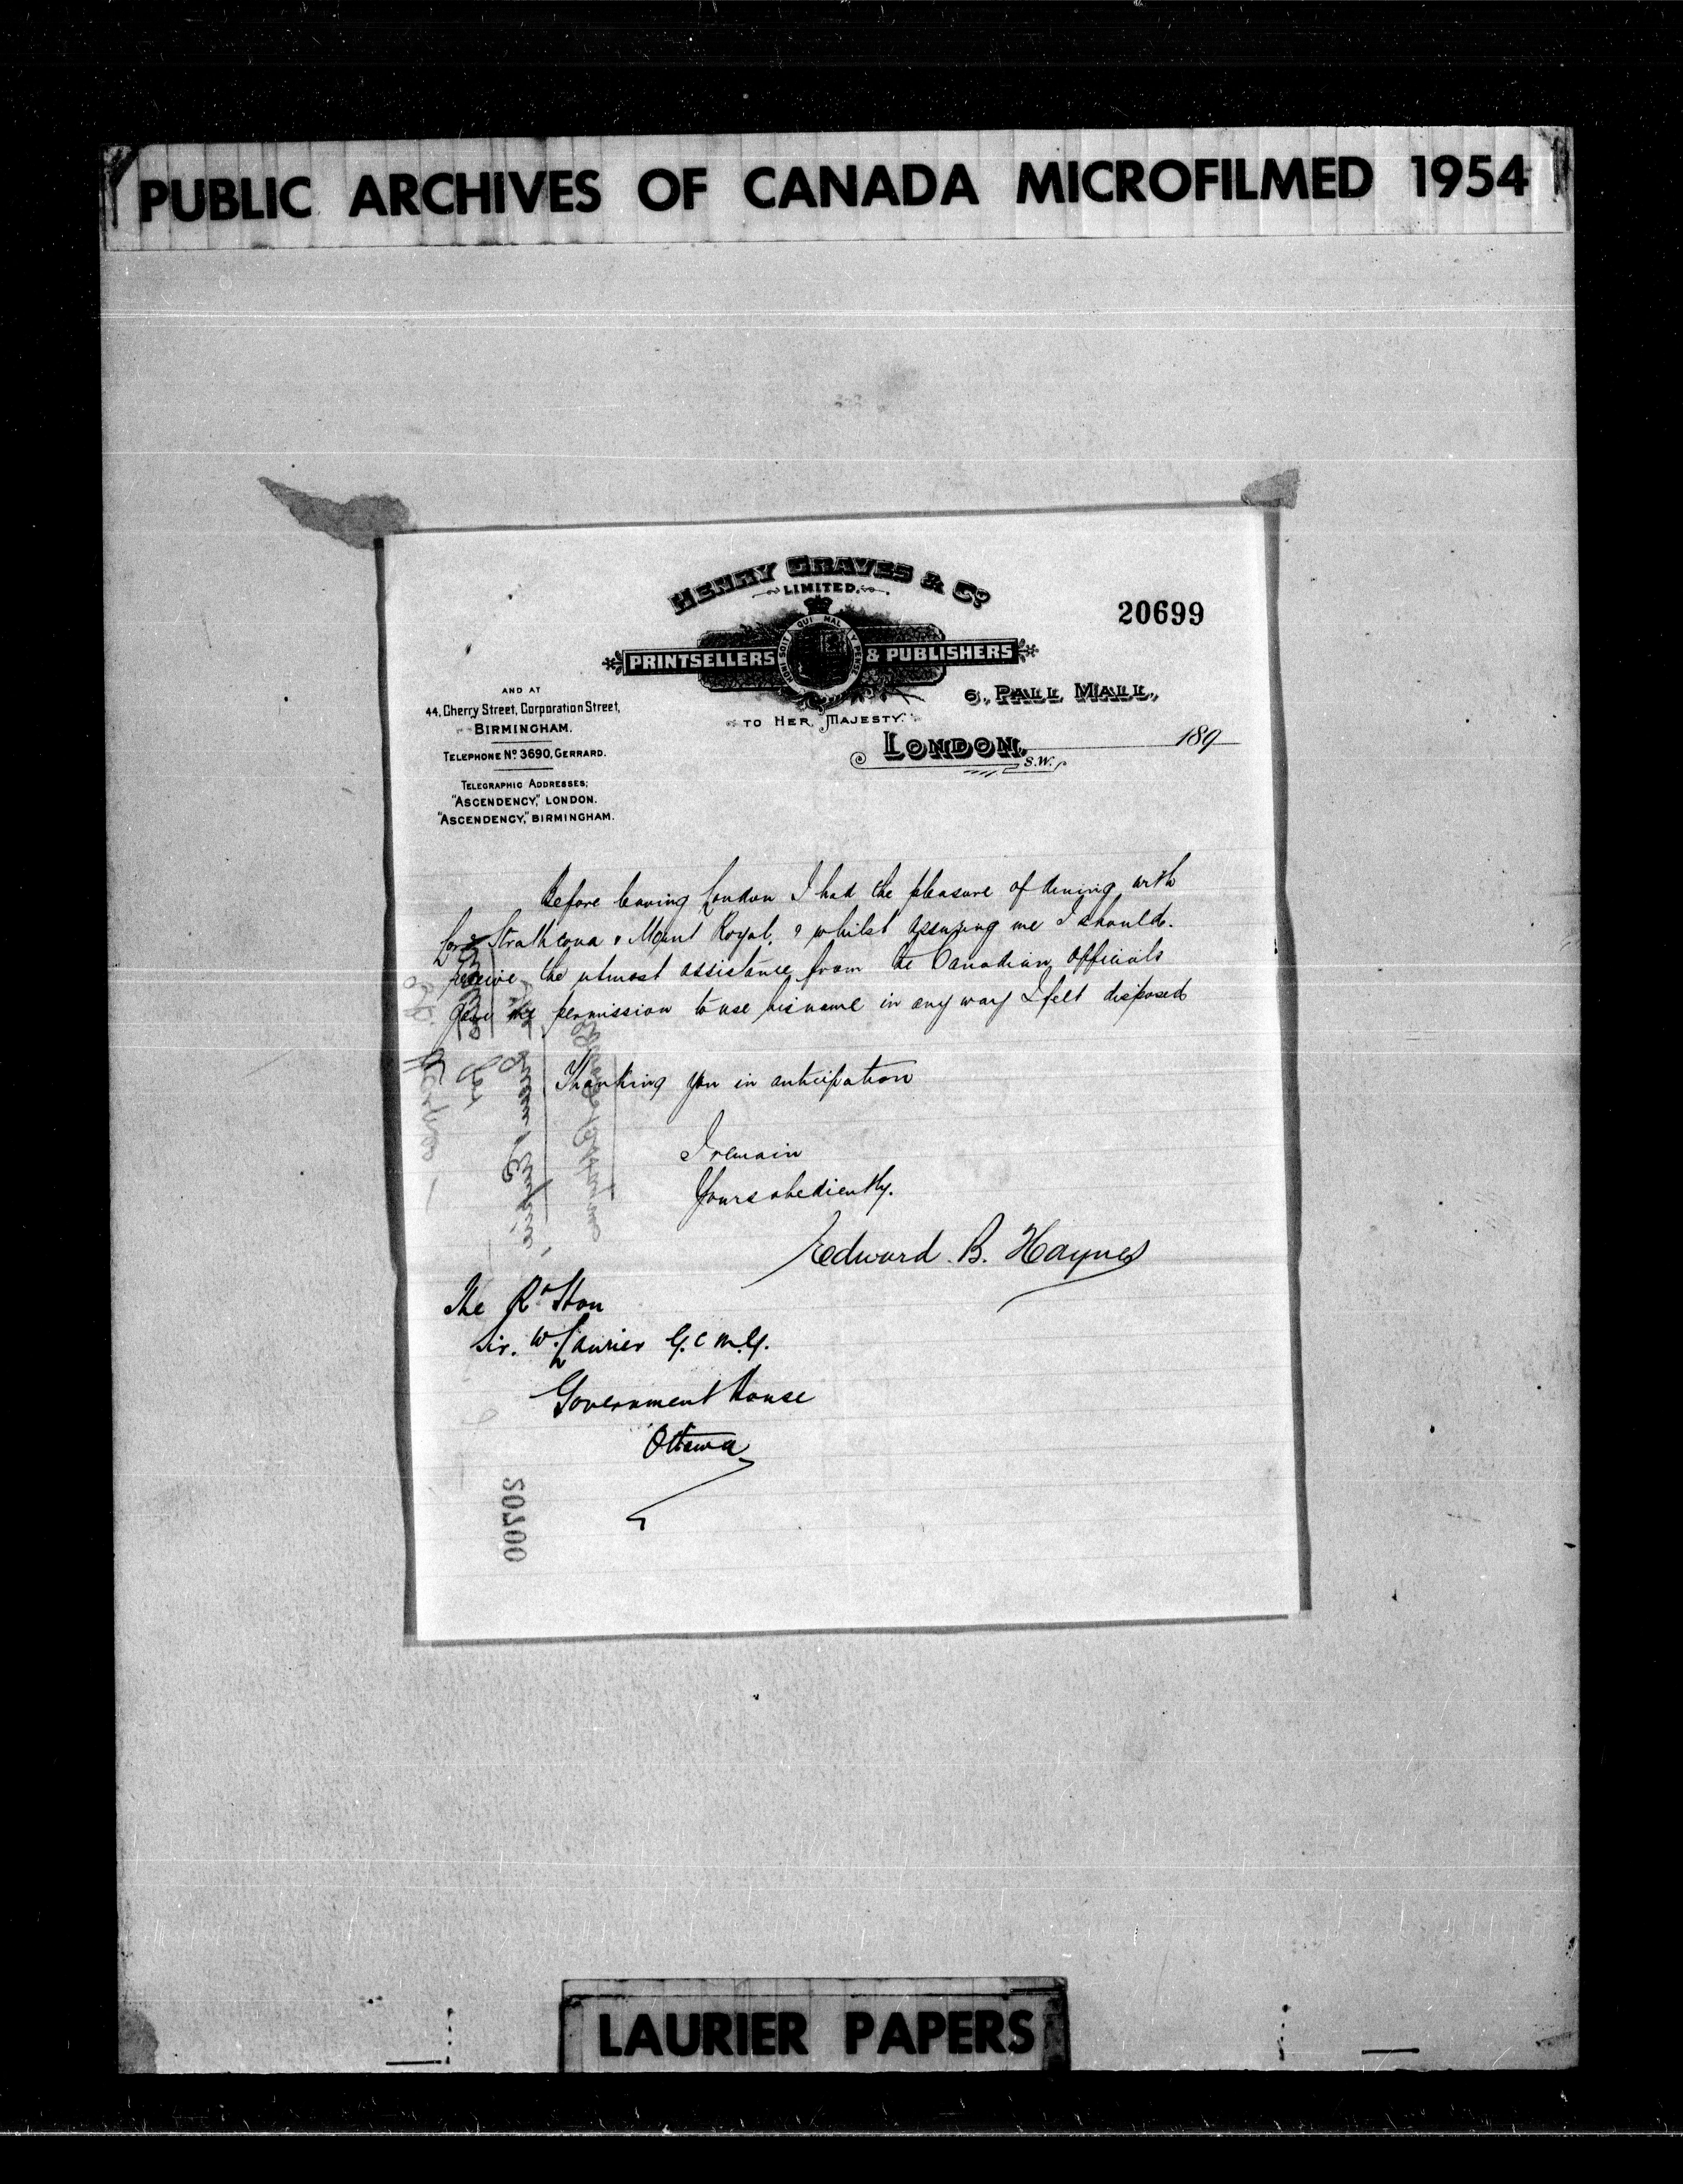 PUBLIC ARCHIVES OF CANADA MICROFILMED 1954
HENRY GRAVES & Co.
LIMITED.
20699
PRINTSELLERS & PUBLISHERS
HONI SOIT QUI MAL Y PENSE
TO HER MAJESTY.
6, PALL MALL,
LONDON, S.W. 189
AND AT
44, Cherry Street, Corporation Street,
BIRMINGHAM.
TELEPHONE No. 3690, GERRARD.
TELEGRAPHIC ADDRESSES;
"ASCENDENCY," LONDON.
"ASCENDENCY," BIRMINGHAM.
Before leaving London I had the pleasure of dining with
Lord Strathcona & Mount Royal, & whilst assuring me I should
receive the utmost assistance from the Canadian Officials
gave me permission to use his name in any way I felt disposed
Thanking you in anticipation
I remain
Yours obediently.
Edward B. Haynes
The Rt Hon
Sir. W. Laurier G.C.M.G.
Government House
Ottawa
20700
LAURIER PAPERS